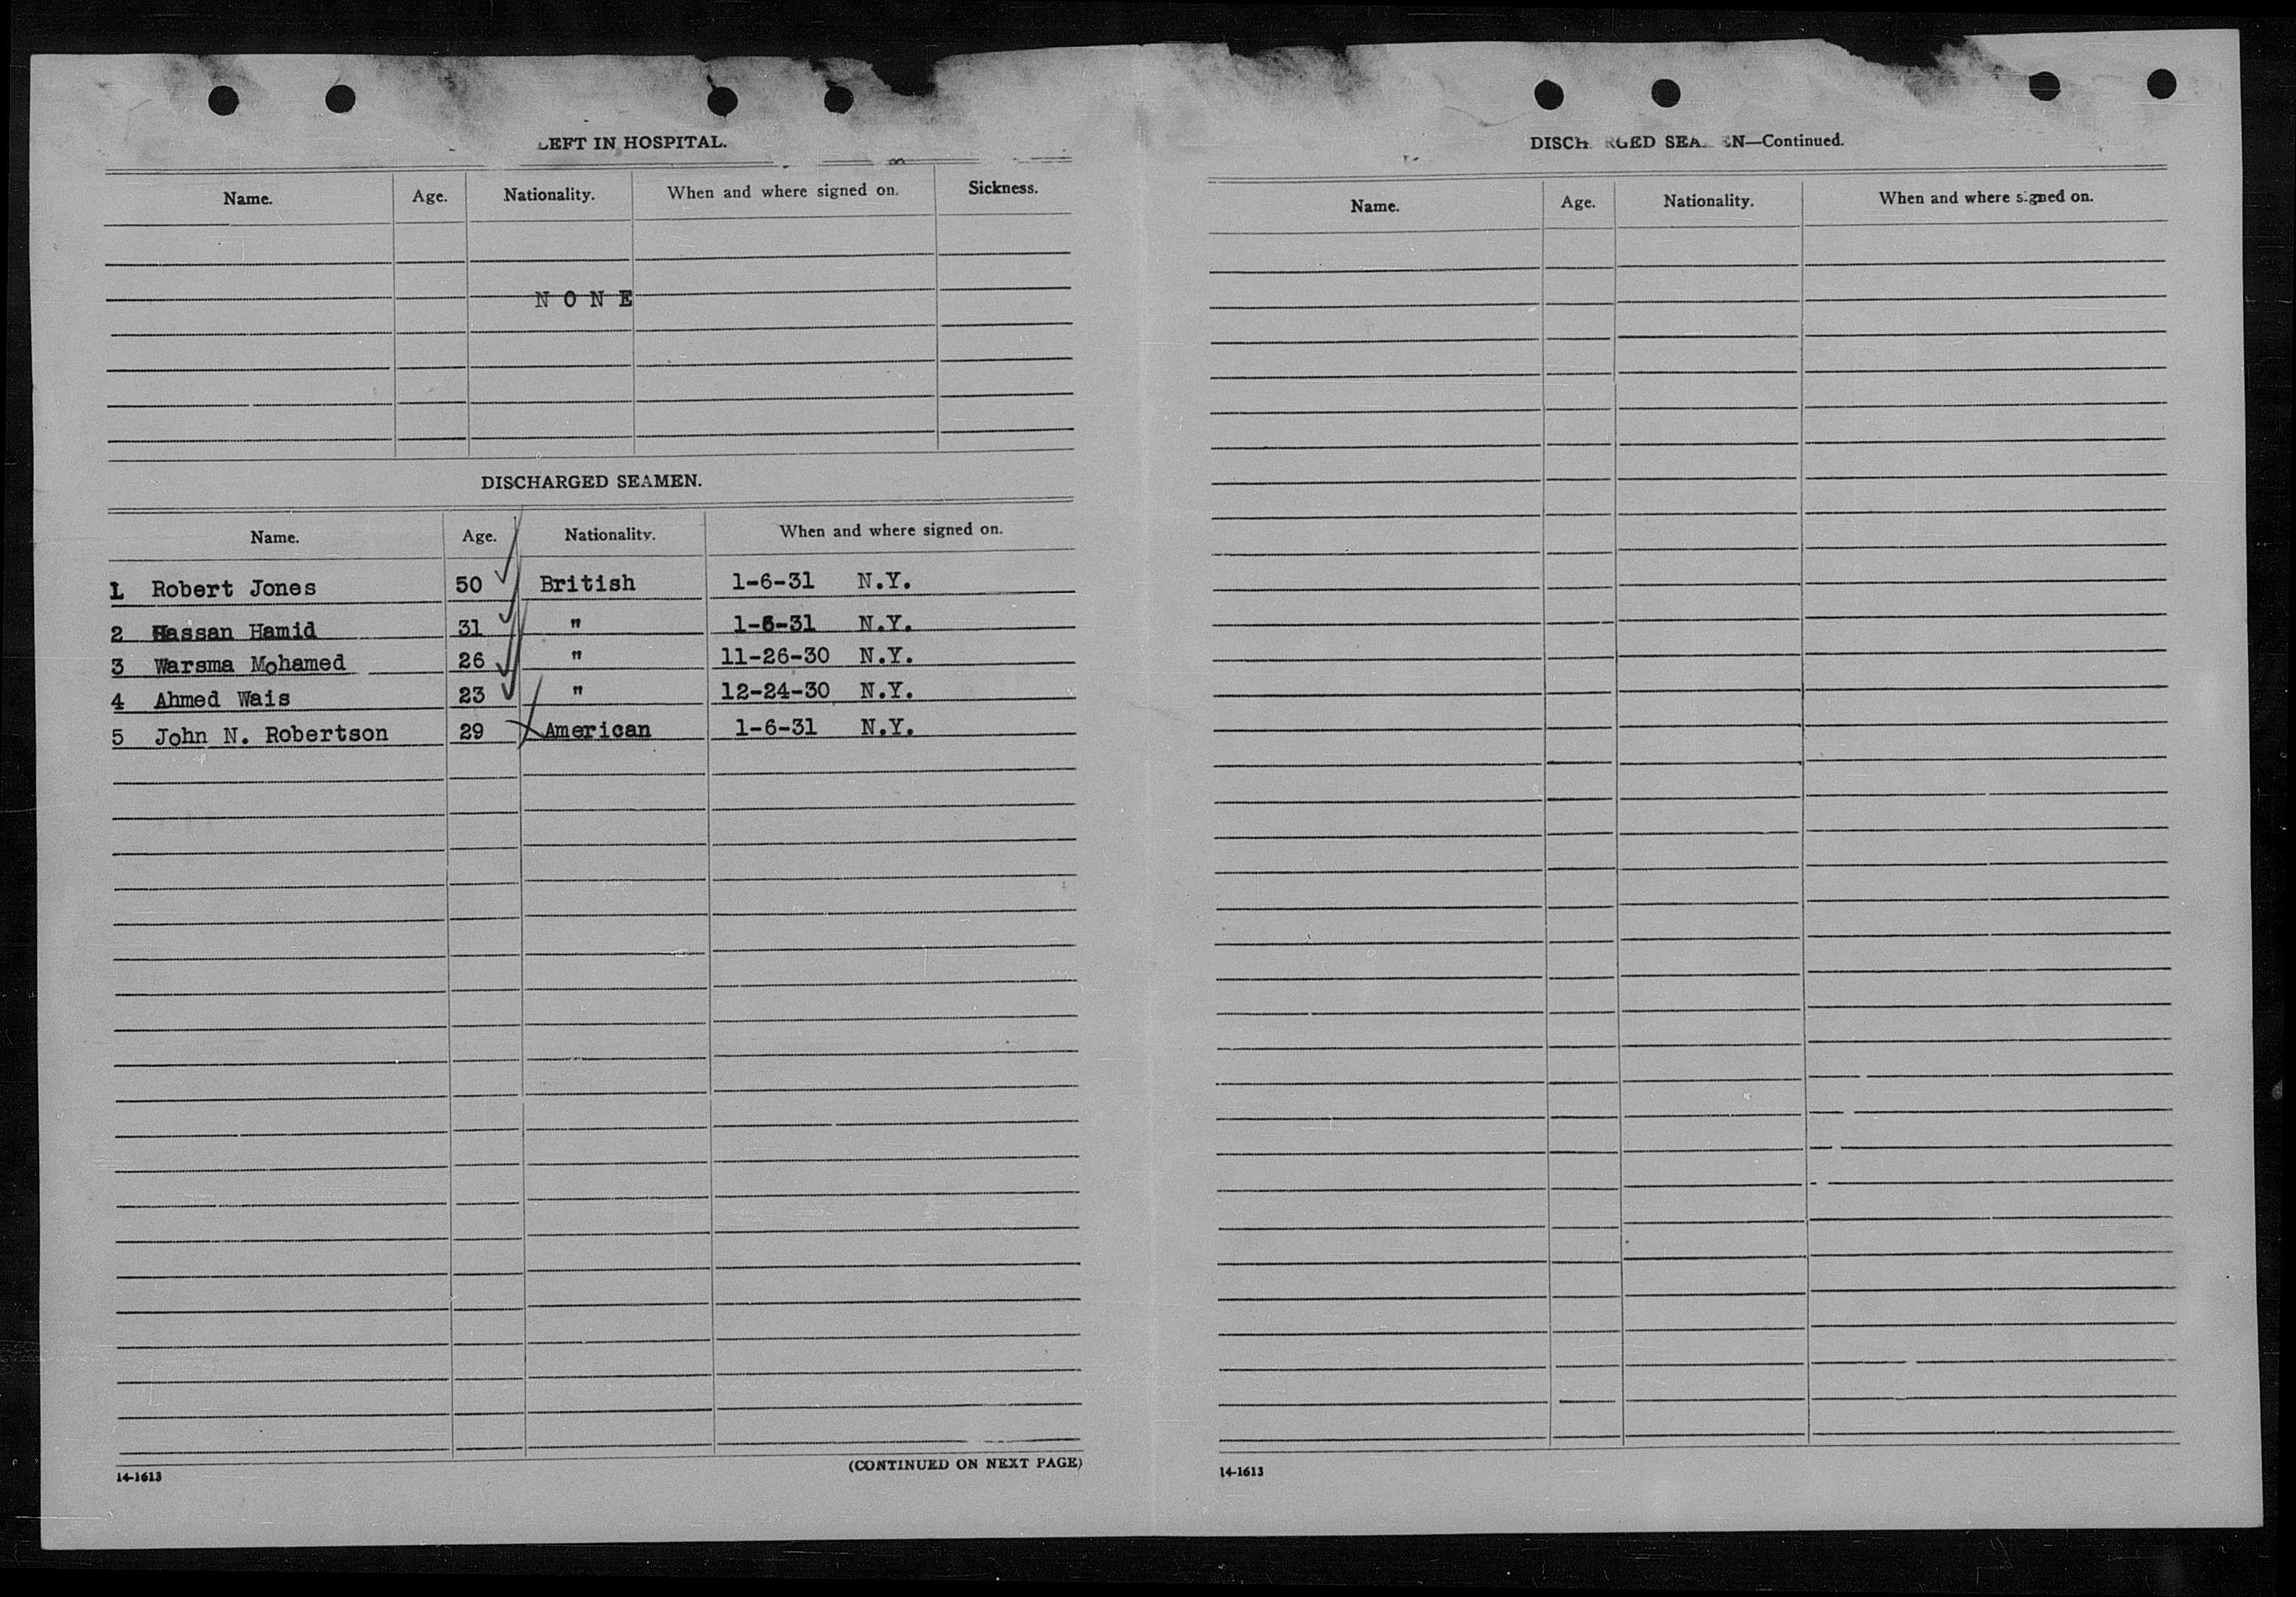 LEFT IN HOSPITAL.
Name. Age. Nationality. When and where signed on. Sickness.
NONE
DISCHARGED SEAMEN.
Name. Age. Nationality. When and where signed on.
1 Robert Jones 50 British 1-6-31 N.Y.
2 Hassan Hamid 31 " 1-6-31 N.Y.
3 Warsma Mohamed 26 " 11-26-30 N.Y.
4 Ahmed Wais 23 " 12-24-30 N.Y.
5 John N. Robertson 29 American 1-6-31 N.Y.
(CONTINUED ON NEXT PAGE)
14-1613
DISCHARGED SEAMEN—Continued.
Name. Age. Nationality. When and where signed on.
14-1613